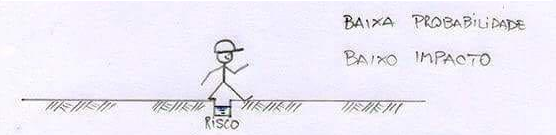 BAIXA PROBABILIDADE
BAIXO IMPACTO
RISCO